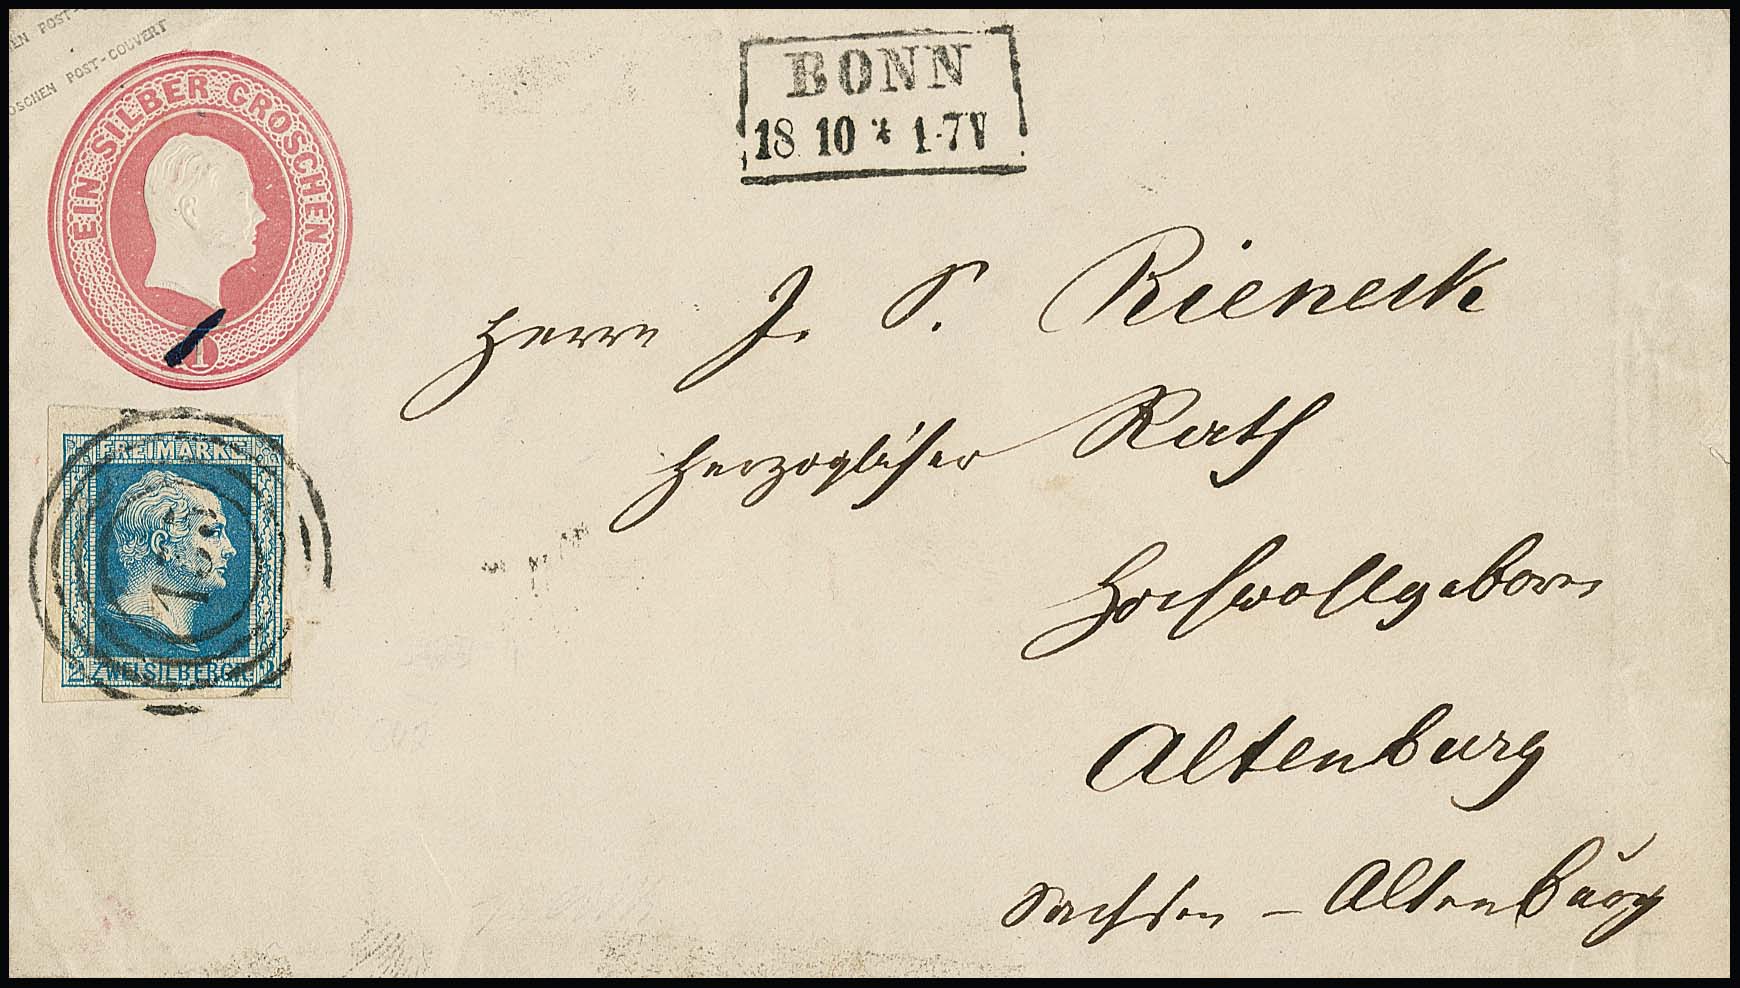 POST-COUVERT
OSCHEN POST-COUVERT
EIN SILBER GROSCHEN
1
BONN
18 10 * 1-7V
Herrn J. S. Rieneck
Herzoglicher Rath
Hochwohlgeboren
Altenburg
Sachsen - Altenburg
FREIMARKE
2 ZWEI SILBERGR. 2